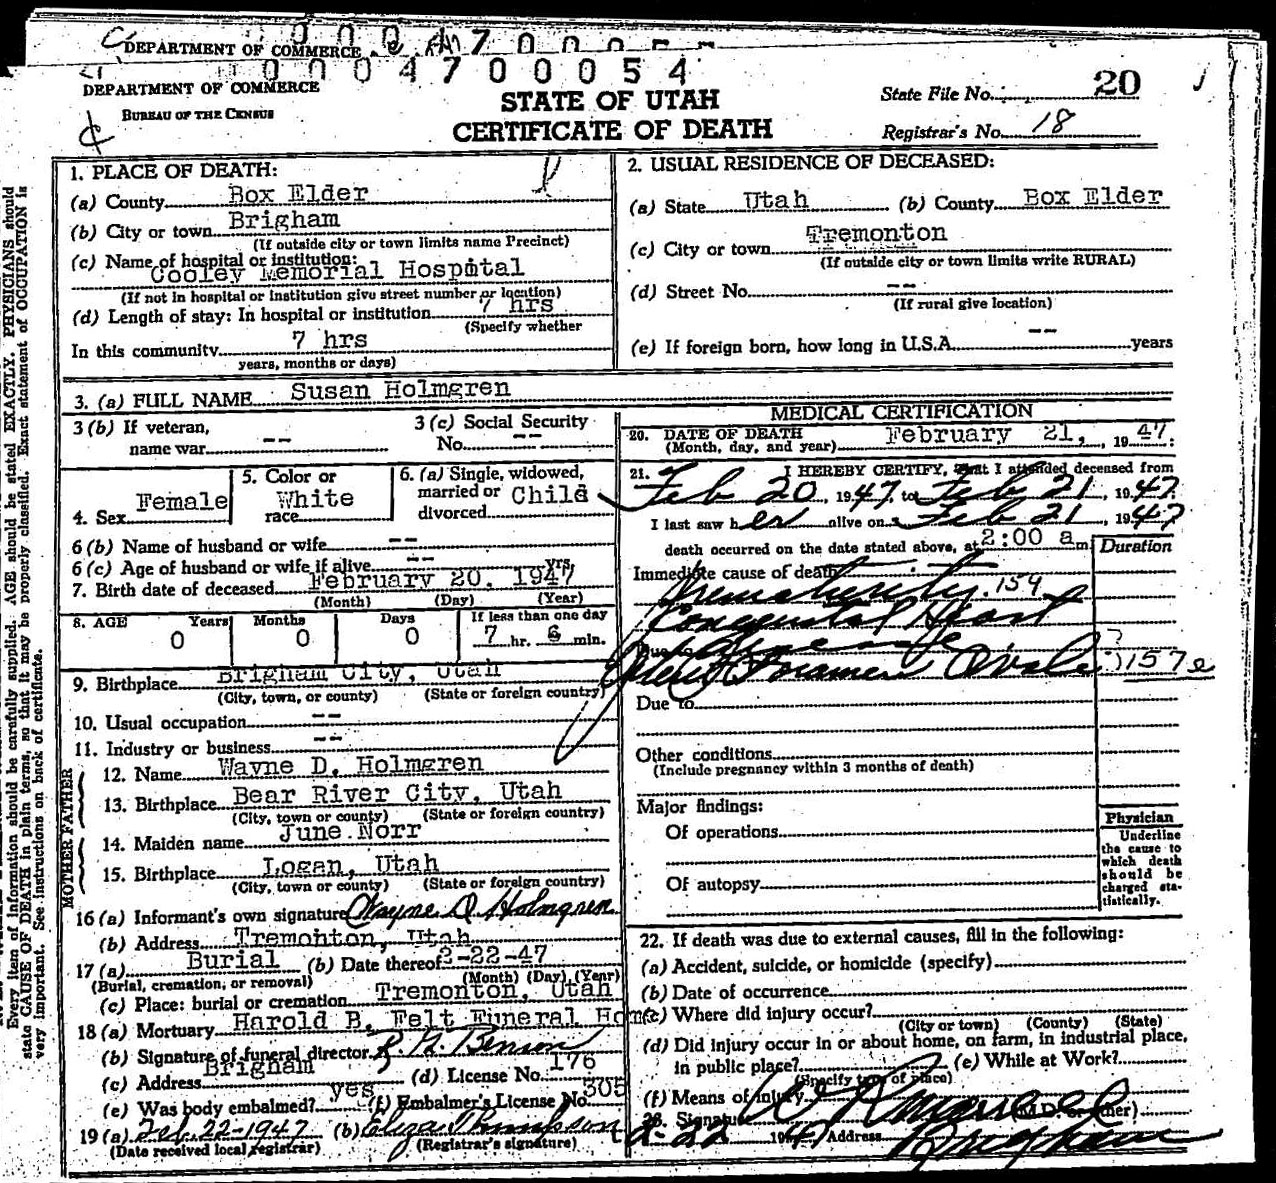 DEPARTMENT OF COMMERCE
0 0 0 4 7 0 0 0 5 4
DEPARTMENT OF COMMERCE
BUREAU OF THE CENSUS
STATE OF UTAH
CERTIFICATE OF DEATH
State File No. 20
Registrar's No. 18
1. PLACE OF DEATH:
(a) County Box Elder
(b) City or town Brigham
(If outside city or town limits name Precinct)
(c) Name of hospital or institution:
Cooley Memorial Hospital
(If not in hospital or institution give street number or location)
(d) Length of stay: In hospital or institution 7 hrs
(Specify whether
In this community 7 hrs
years, months or days)
2. USUAL RESIDENCE OF DECEASED:
(a) State Utah (b) County Box Elder
(c) City or town Tremonton
(If outside city or town limits write RURAL)
(d) Street No. --
(If rural give location)
(e) If foreign born, how long in U.S.A. -- years
3. (a) FULL NAME Susan Holmgren
3 (b) If veteran, name war -- 3 (c) Social Security No. --
4. Sex Female 5. Color or race White 6. (a) Single, widowed, married or divorced Child
6 (b) Name of husband or wife --
6 (c) Age of husband or wife if alive -- yrs.
7. Birth date of deceased February 20, 1947
(Month) (Day) (Year)
8. AGE Years Months Days If less than one day
0 0 0 7 hr. 6 min.
9. Birthplace Brigham City, Utah
(City, town, or county) (State or foreign country)
10. Usual occupation --
11. Industry or business --
FATHER
12. Name Wayne D. Holmgren
13. Birthplace Bear River City, Utah
(City, town or county) (State or foreign country)
MOTHER
14. Maiden name June Norr
15. Birthplace Logan, Utah
(City, town or county) (State or foreign country)
16 (a) Informant's own signature Wayne D. Holmgren
(b) Address Tremonton, Utah
17 (a) Burial (b) Date thereof 2-22-47
(Burial, cremation, or removal) (Month) (Day) (Year)
(c) Place: burial or cremation Tremonton, Utah
18 (a) Mortuary Harold B. Felt Funeral Home
(b) Signature of funeral director Benson
(c) Address Brigham (d) License No. 176
(e) Was body embalmed? yes (f) Embalmer's License No. 305
19 (a) Feb. 22-1947 (b) Eliza
(Date received local registrar) (Registrar's signature)
MEDICAL CERTIFICATION
20. DATE OF DEATH February 21, 1947:
(Month, day, and year)
21. I HEREBY CERTIFY, that I attended deceased from
Feb 20, 1947 to Feb 21, 1947
I last saw her alive on Feb 21, 1947
death occurred on the date stated above, at 2:00 a m
Duration
Immediate cause of death
Prematurity 159
Congenital Heart
Due to
Patent Foramen Ovale ? 157e
Due to
Other conditions
(Include pregnancy within 3 months of death)
Major findings:
Of operations
Of autopsy
Physician
Underline the cause to which death should be charged statistically.
22. If death was due to external causes, fill in the following:
(a) Accident, suicide, or homicide (specify)
(b) Date of occurrence
(c) Where did injury occur?
(City or town) (County) (State)
(d) Did injury occur in or about home, on farm, in industrial place,
in public place? (e) While at Work?
(Specify type of place)
(f) Means of injury
23. Signature (M.D. or other)
2-22 1947 Address Brigham
Every item of information should be carefully supplied. AGE should be stated EXACTLY. PHYSICIANS should
state CAUSE OF DEATH in plain terms, so that it may be properly classified. Exact statement of OCCUPATION is
very important. See instructions on back of certificate.